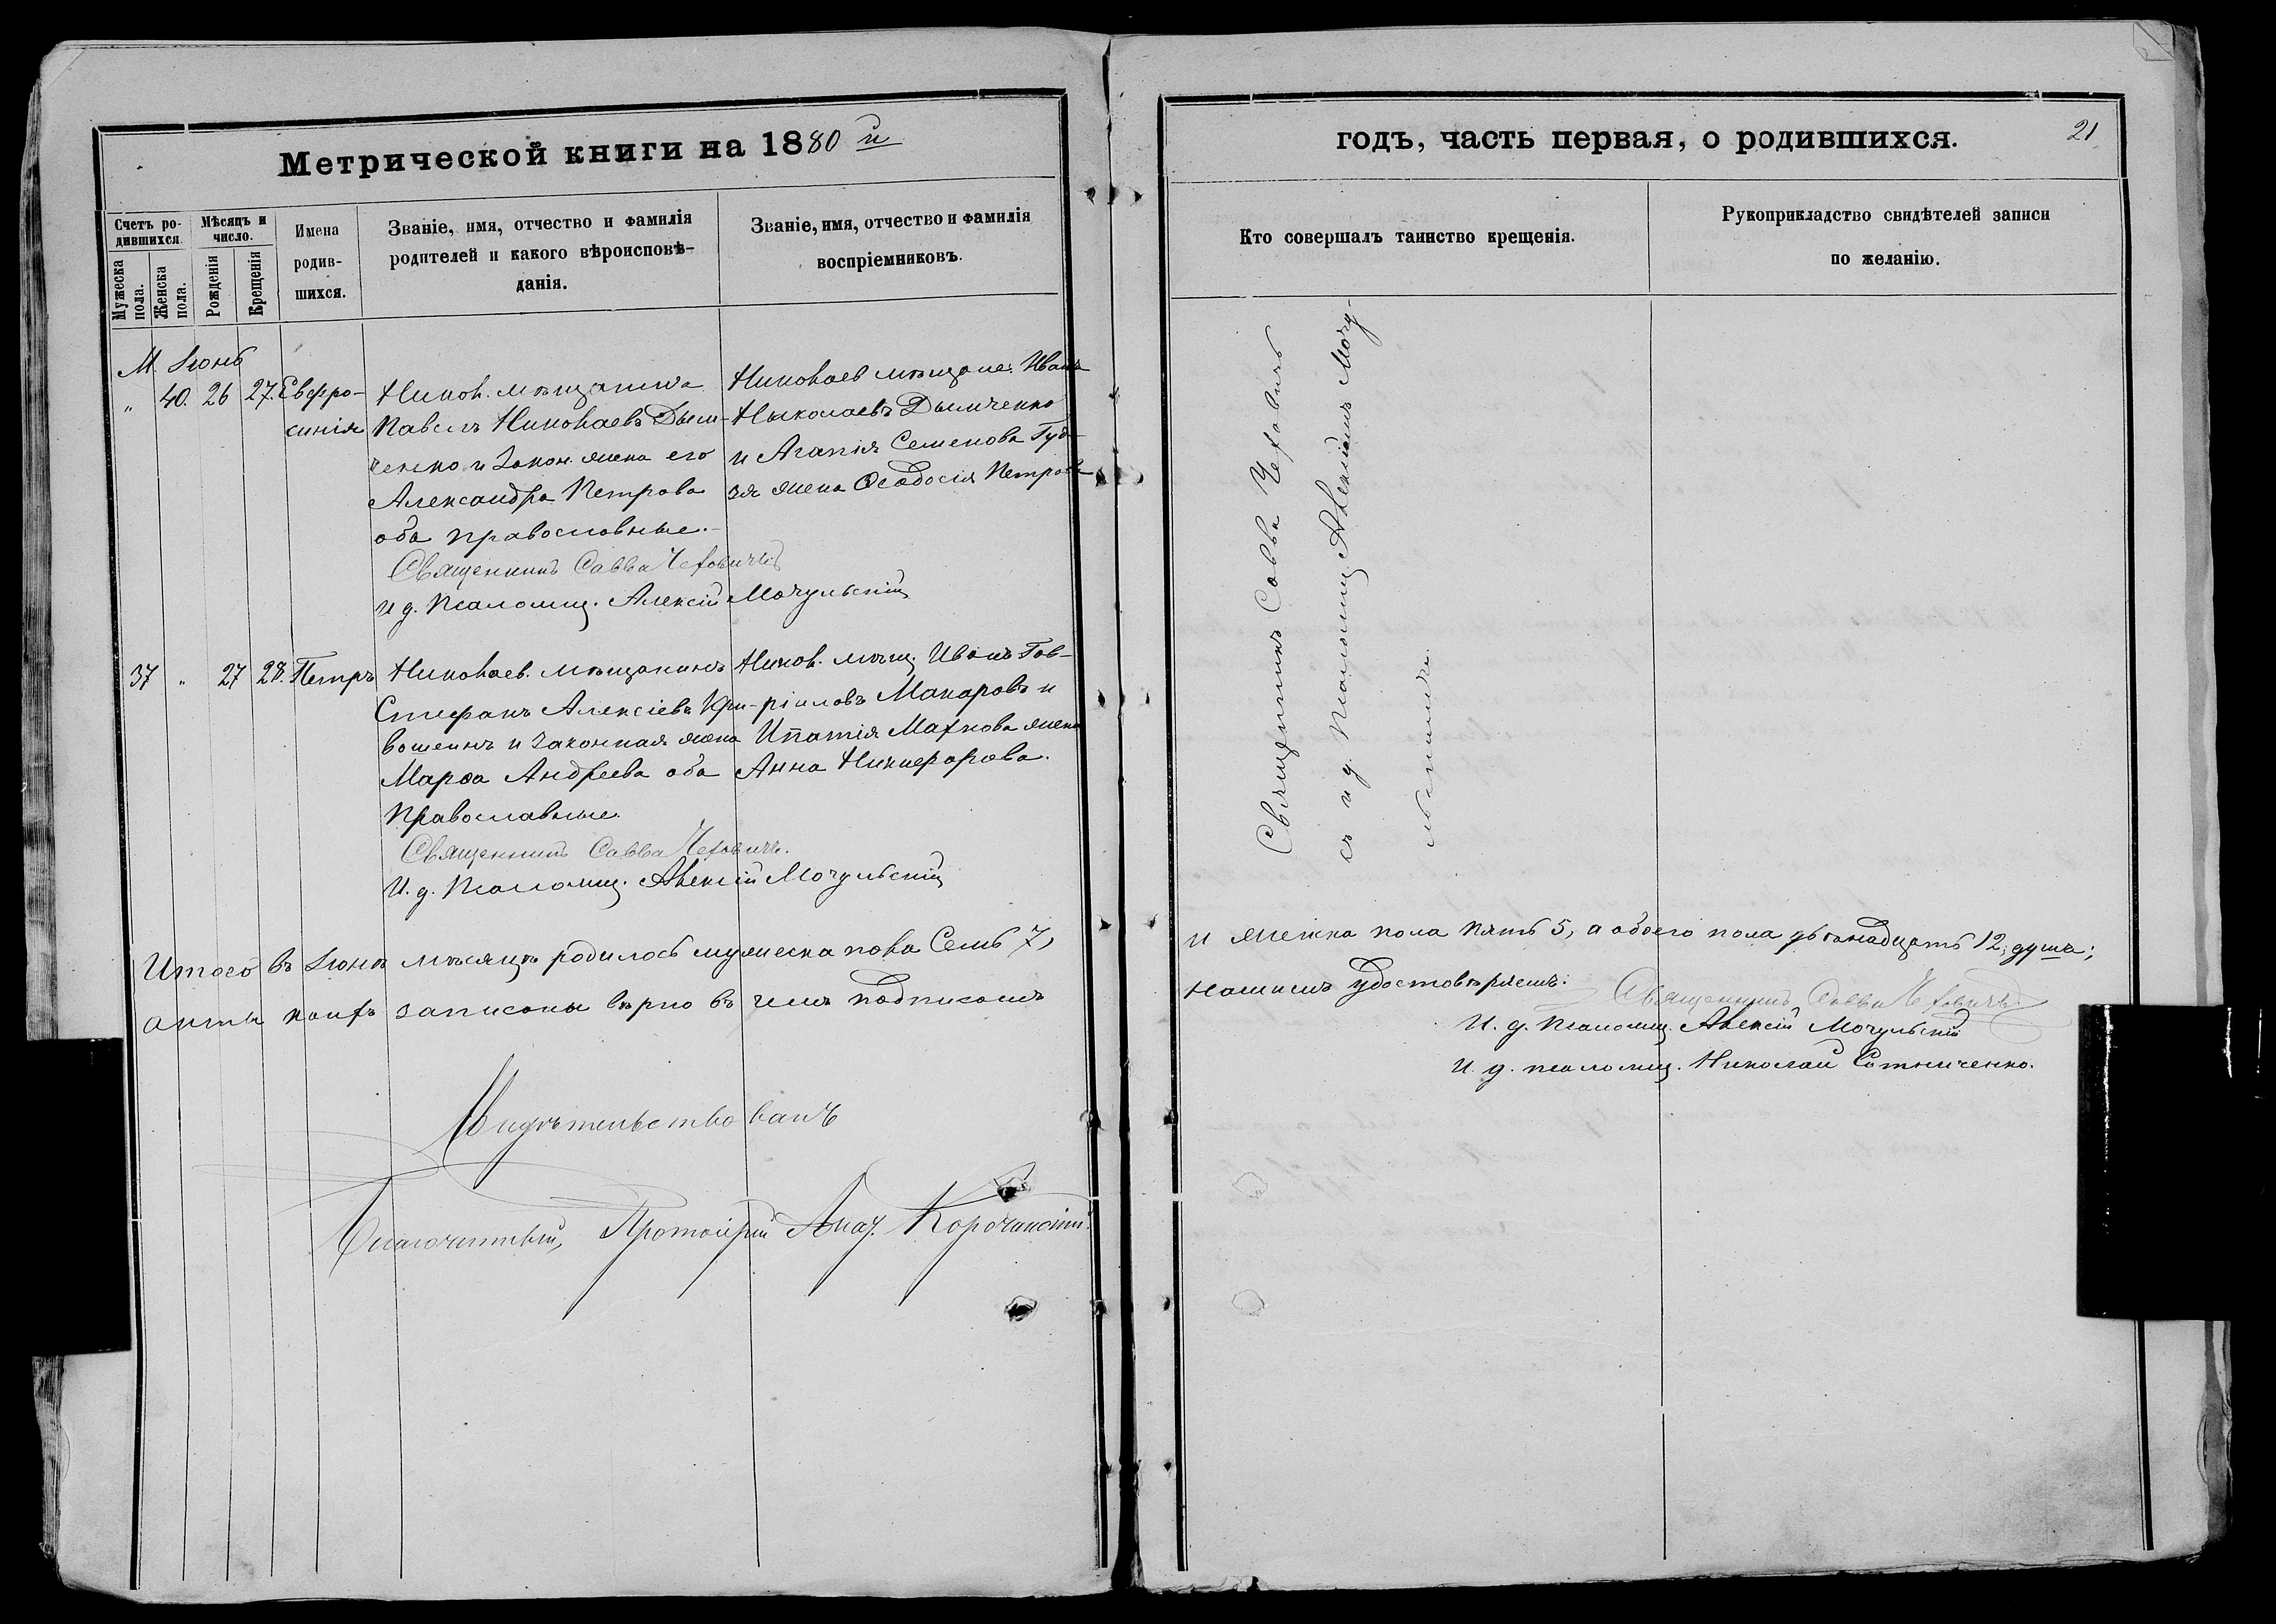 Метрической книги на 1880 й
Счетъ ро-
дившихся.
Мѣсяцъ и
число.
Мужеска
пола.
Женска
пола.
Рожденія
Крещенія
Имена
родив-
шихся.
Званіе, имя, отчество и фамилія
родителей и какого вѣроисповѣ-
данія.
Званіе, имя, отчество и фамилія
воспріемниковъ.
М. Іюнь
„ 40. 26 27. Евфро-
синія
Никол. мѣщанинъ
Павелъ Николаевъ Дым-
ченко и закон. жена его
Александра Петрова
оба православные.
Священникъ Савва Чехович
И д. Псаломщ. Алексій Мочульскій
Николаев мѣщане: Иванъ
Николаевъ Дымченко
и Агапія Семенова Гуд-
зя жена Ѳеодосія Петрова
37 „ 27 28. Петръ
Николаев. мѣщанинъ
Стефанъ Алексіевъ Кри-
вошеинъ и законная жена
Марѳа Андреева оба
православные.
Священникъ Савва Чеховичъ.
И. д. Псаломщ. Алексій Мочульскій
Никол. мѣщ. Иванъ Гав-
ріиловъ Макаровъ и
Ипатія Махнова жена
Анна Никифорова.
Итого въ Іюнѣ мѣсяцѣ родилось мужеска пола Семь 7,
акты коихъ записаны вѣрно въ чемъ подписомъ
Свидѣтельствовалъ
Благочинный, Протоіерей Корочанскій.
годъ, часть первая, о родившихся.
21
Кто совершалъ таинство крещенія.
Рукоприкладство свидѣтелей записи
по желанію.
Священникъ Савва Чеховичъ
съ и д. Псаломщ. Алексіемъ Мочу-
льскимъ.
и женска пола пять 5, а обоего пола двѣнадцать 12, душъ;
нашимъ удостовѣряемъ:
Священникъ Савва Чеховичъ
И. д. Псаломщ. Алексій Мочульскій
И. д. псаломщ. Николай Сотниченко.